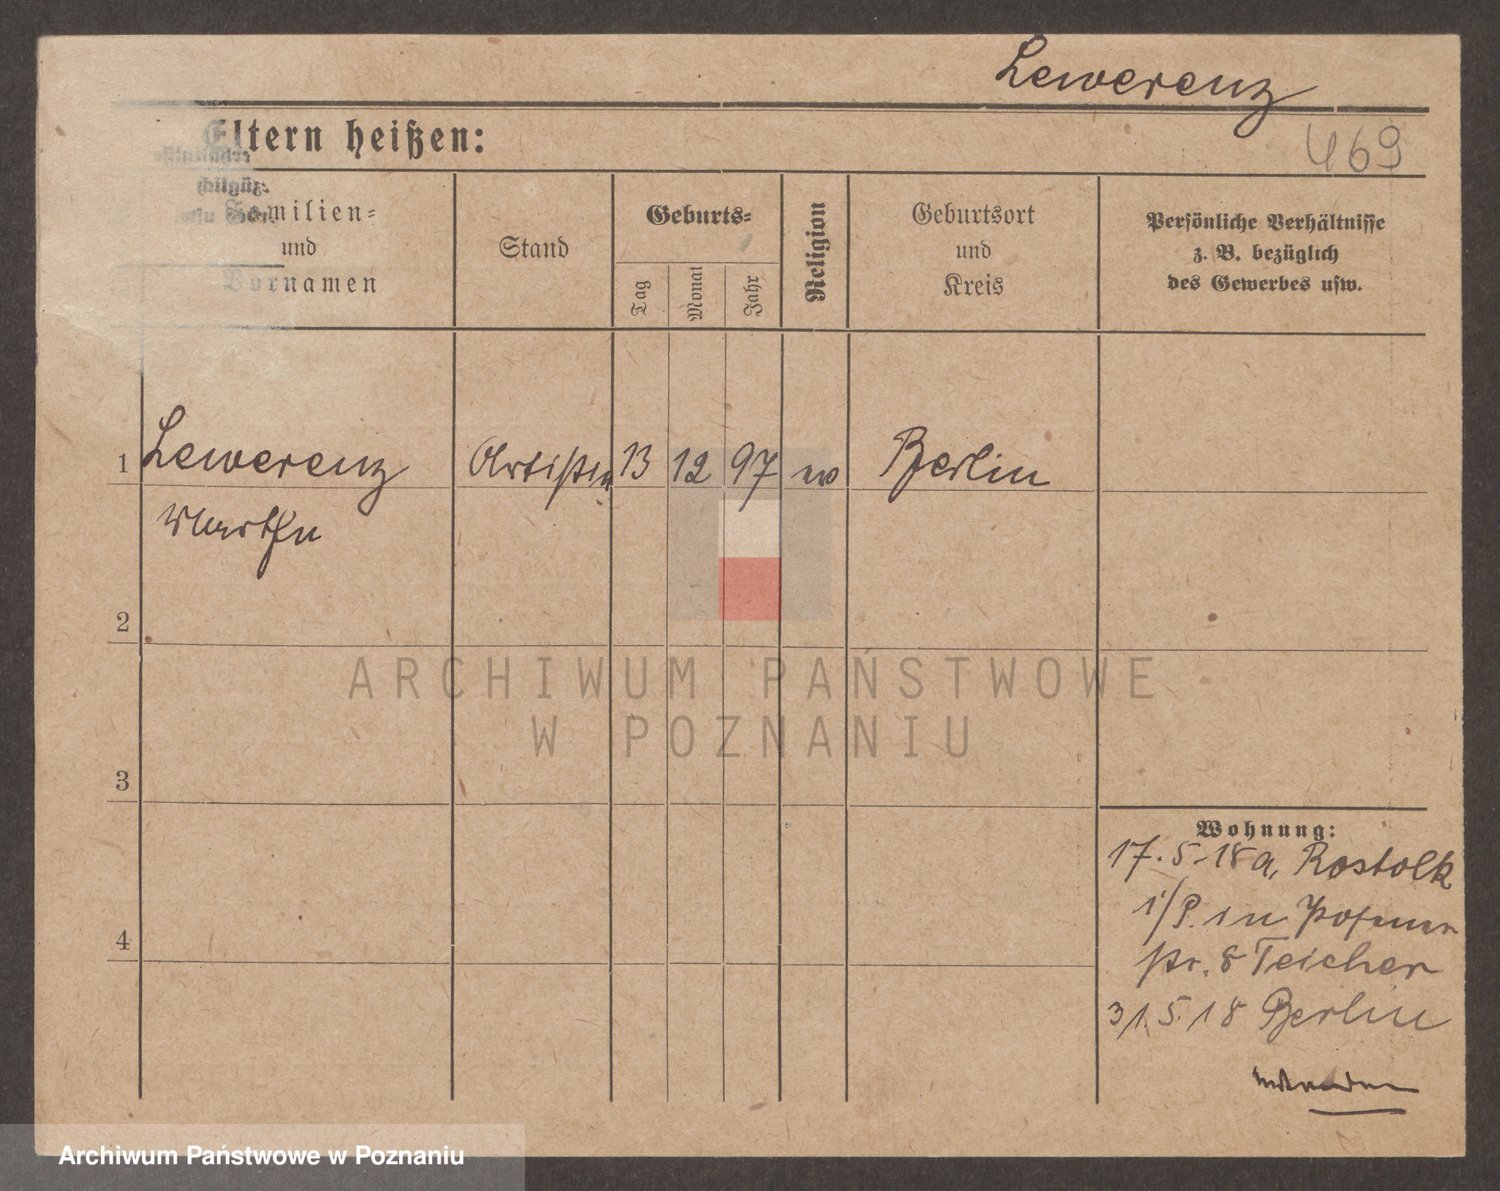 Lewerenz
469
Eltern heißen:
Familien-
und
Vornamen
Stand
Geburts-
Tag
Monat
Jahr
Religion
Geburtsort
und
Kreis
Persönliche Verhältnisse
z. B. bezüglich
des Gewerbes usw.
1 Lewerenz Artistin 13 12 97 ev Berlin
Martha
2
3
4
Wohnung:
17.5.18 a, Rostock
i/P. in Posener
str. 8 Teicher
31.5.18 Berlin
ARCHIWUM PAŃSTWOWE
W POZNANIU
Archiwum Państwowe w Poznaniu